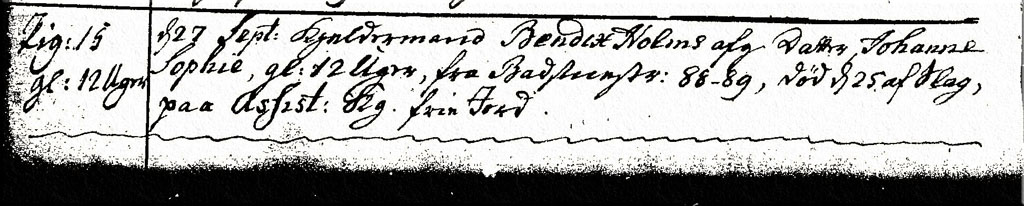 Lig: 15
gl: 12 Uger
d 27 Sept: Kjeldermand Bendix Holms afg Datter, Johanne
Sophie, gl: 12 Uger, fra Badstuestr: 88-89, død d 25 af Slag,
paa Assist: Kg. frie Jord.